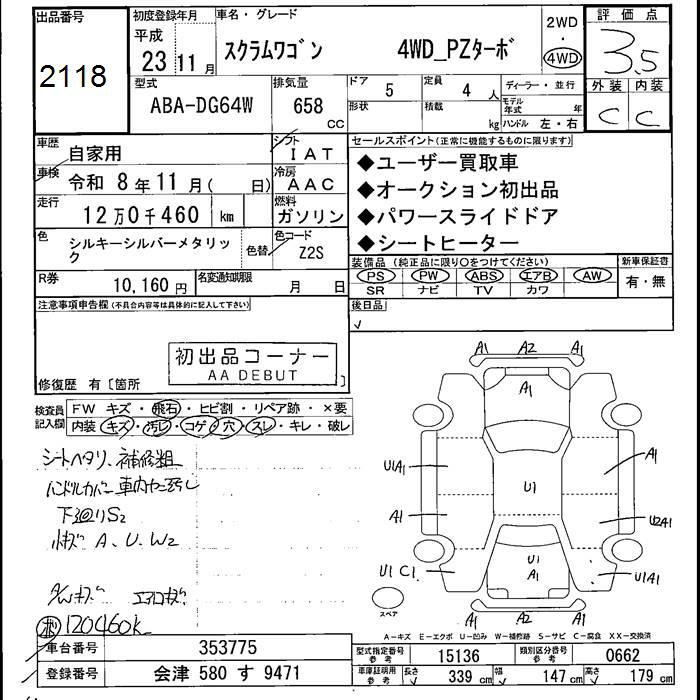 出品番号
2118
初度登録年月
平成
23年11月
車名・グレード
スクラムワゴン 4WD_PZターボ
2WD
・
4WD
評価点
3.5
外装 内装
C C
型式
ABA-DG64W
排気量
658
CC
ドア 5
定員 4人
ディーラー・並行
形状
積載 kg
モデル年式 年
ハンドル 左・右
車歴 自家用
シフト IAT
車検 令和 8年11月( 日)
冷房 AAC
走行 12万0千460 km
燃料 ガソリン
色 シルキーシルバーメタリック
色替
色コード Z2S
R券 10,160円
名変通知期限 月 日
セールスポイント(正常に機能するものに限ります)
◆ユーザー買取車
◆オークション初出品
◆パワースライドドア
◆シートヒーター
装備品(純正品に限り〇をつけてください)
PS PW ABS エアB AW
SR ナビ TV カワ
新車保証書
有・無
後日品
注意事項申告欄(不具合内容等は具体的に記入して下さい)
初出品コーナー
AA DEBUT
修復歴 有〔箇所 〕
検査員記入欄
FW キズ・飛石・ヒビ割・リペア跡・×要
内装・キズ・汚レ・コゲ・穴・スレ・キレ・破レ
シートヘタリ、補修粗
ハンドルカバー 車内ヤニ汚し
下廻りS2
小キズ A、U、W2
AWキズ エアロキズ
120460K
A1 A2 A1
A1
U1A1
A1
U1
A1
U2A1
U1 C1
U1
A1
U1A1
A1 A2 A1
スペア
A-キズ E-エクボ U-凹み W-補修跡 S-サビ C-腐食 XX-交換済
車台番号 353775
登録番号 会津 580 す 9471
型式指定番号 参考 15136
類別区分番号 参考 0662
車庫証明用 参考 長さ 339cm 幅 147cm 高さ 179cm